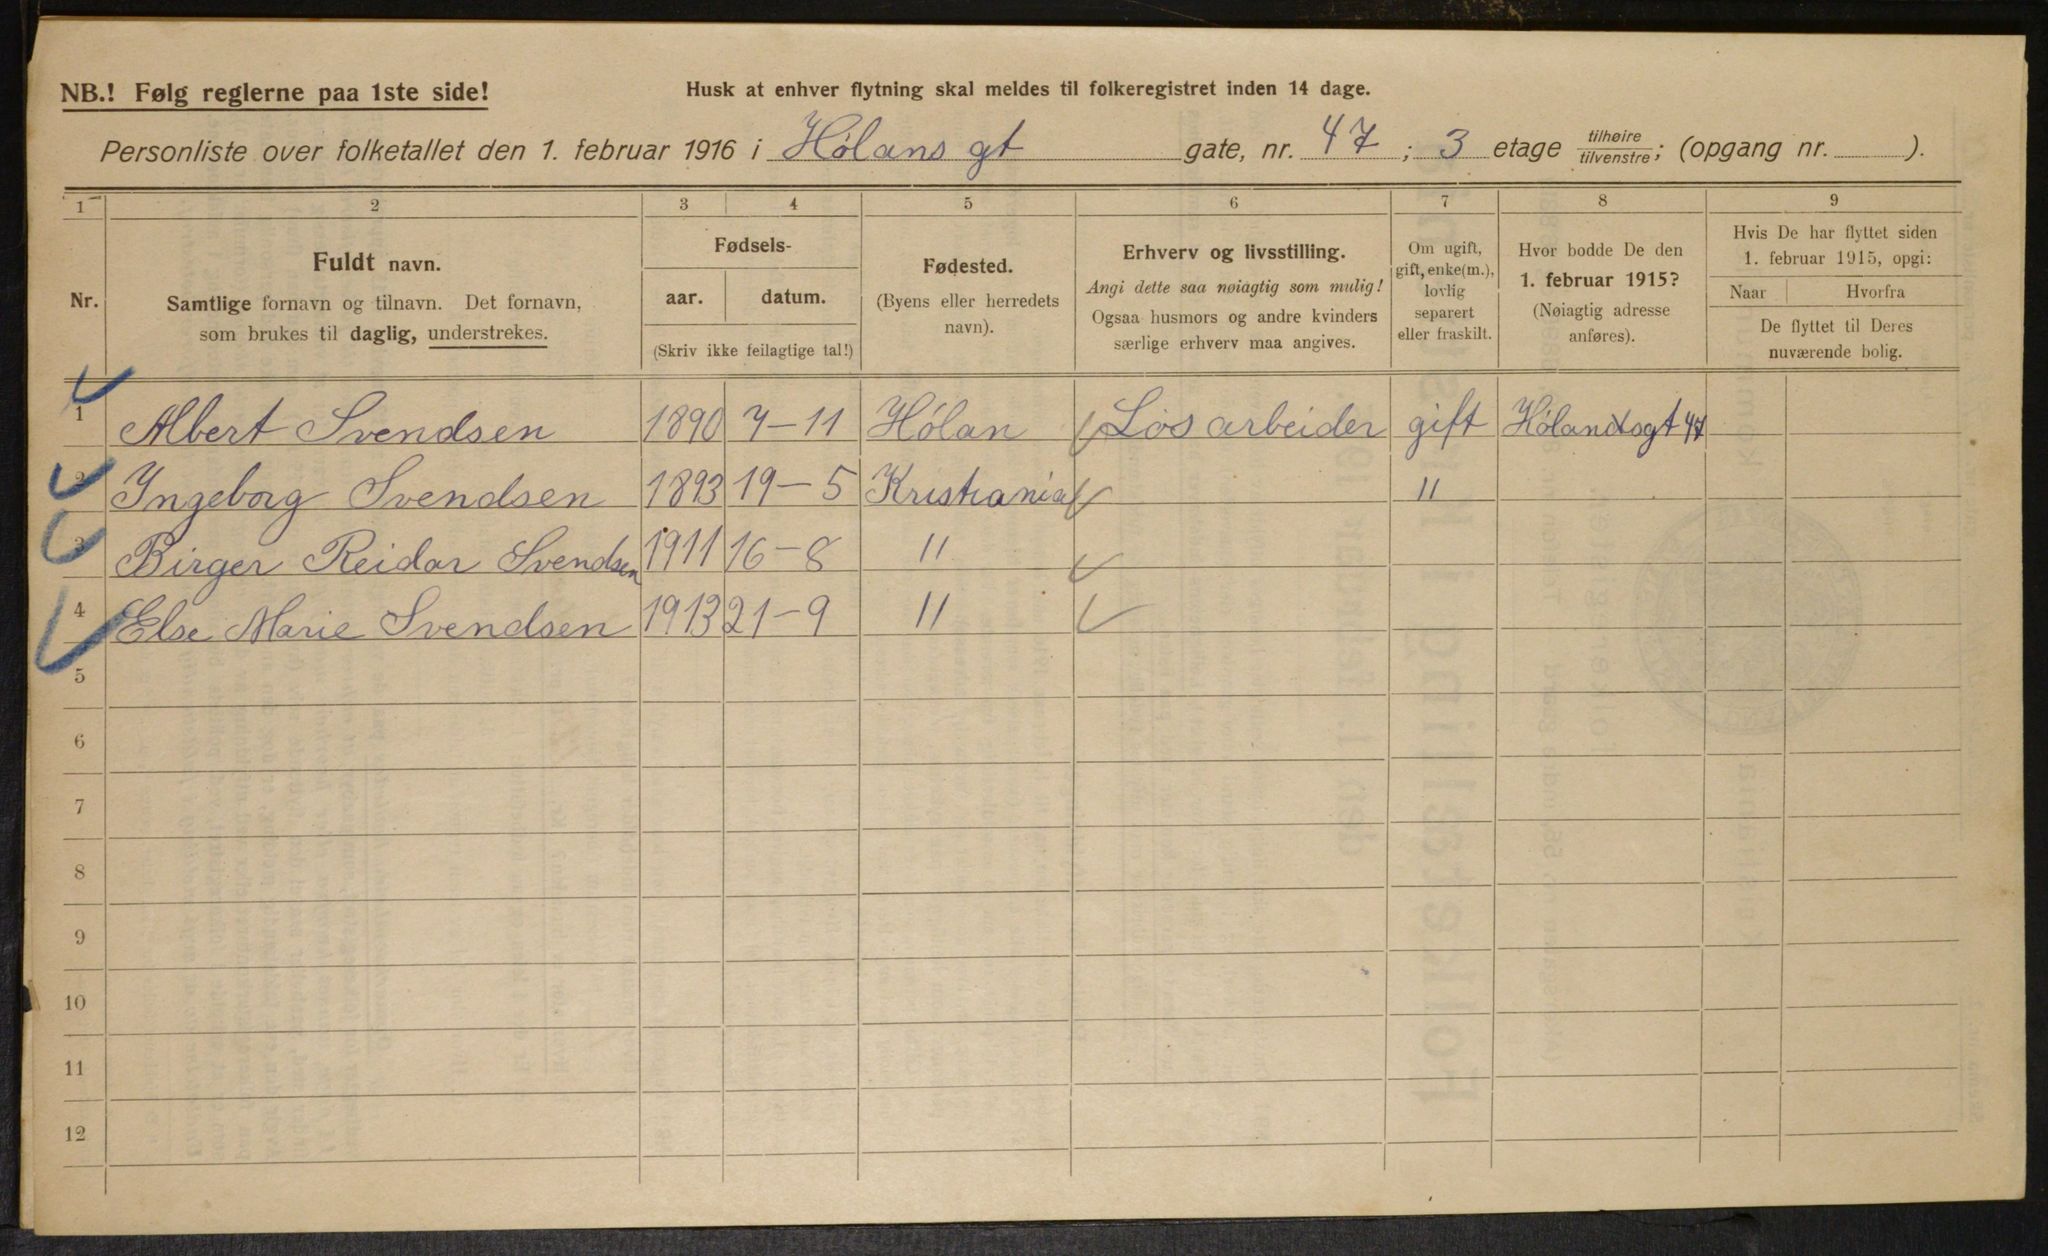 NB.! Følg reglerne paa 1ste side!
Husk at enhver flytning skal meldes til folkeregistret inden 14 dage.
Personliste over folketallet den 1. februar 1916 i Hölans gt gate, nr. 47 ; 3 etage tilhøire/tilvenstre; (opgang nr. ).
1 2 3 4 5 6 7 8 9
Nr.
Fuldt navn.
Samtlige fornavn og tilnavn. Det fornavn,
som brukes til daglig, understrekes.
Fødsels-
aar. datum.
(Skriv ikke feilagtige tal!)
Fødested.
(Byens eller herredets
navn).
Erhverv og livsstilling.
Angi dette saa nøiagtig som mulig!
Ogsaa husmors og andre kvinders
særlige erhverv maa angives.
Om ugift,
gift, enke(m.),
lovlig
separert
eller fraskilt.
Hvor bodde De den
1. februar 1915?
(Nøiagtig adresse
anføres).
Hvis De har flyttet siden
1. februar 1915, opgi:
Naar Hvorfra
De flyttet til Deres
nuværende bolig.
1 Albert Svendsen 1890 7-11 Hölan Løs arbeider gift Hölandsgt 47
2 Ingeborg Svendsen 1893 19-5 Kristiania "
3 Birger Reidar Svendsen 1911 16-8 "
4 Else Marie Svendsen 1913 21-9 "
5
6
7
8
9
10
11
12